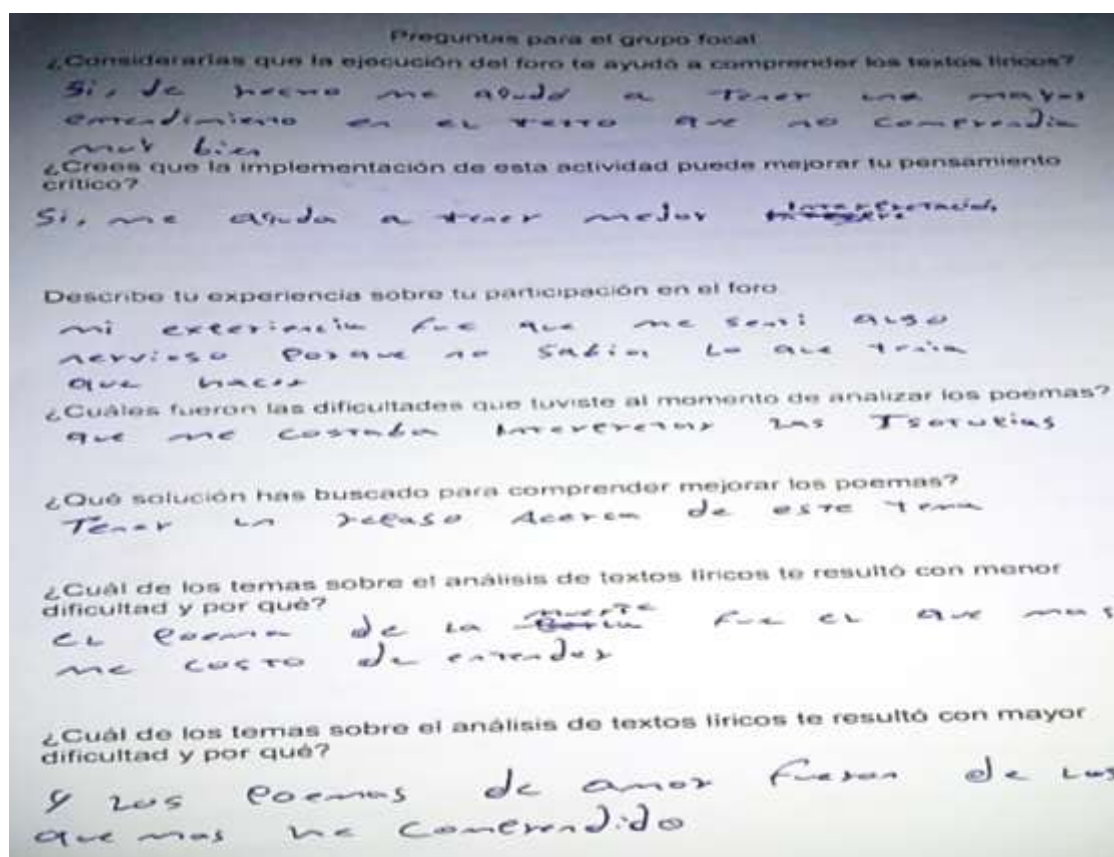 Preguntas para el grupo focal
¿Considerarías que la ejecución del foro te ayudó a comprender los textos líricos?
Si, de hecho me ayudó a tener una mayor
entendimiento en el texto que no comprendia
muy bien
¿Crees que la implementación de esta actividad puede mejorar tu pensamiento
crítico?
Si, me ayuda a tener mejor interpretacion
Describe tu experiencia sobre tu participación en el foro
mi experiencia fue que me senti algo
nervioso porque no sabia lo que tenia
que hacer
¿Cuáles fueron las dificultades que tuviste al momento de analizar los poemas?
que me costaba interpretar las
¿Qué solución has buscado para comprender mejorar los poemas?
Tener un repaso Acerca de este tema
¿Cuál de los temas sobre el análisis de textos líricos te resultó con menor
dificultad y por qué?
el poema de la muerte fue el que mas
me costo de entender
¿Cuál de los temas sobre el análisis de textos líricos te resultó con mayor
dificultad y por qué?
y los poemas de amor fueron de los
que mas he comprendido